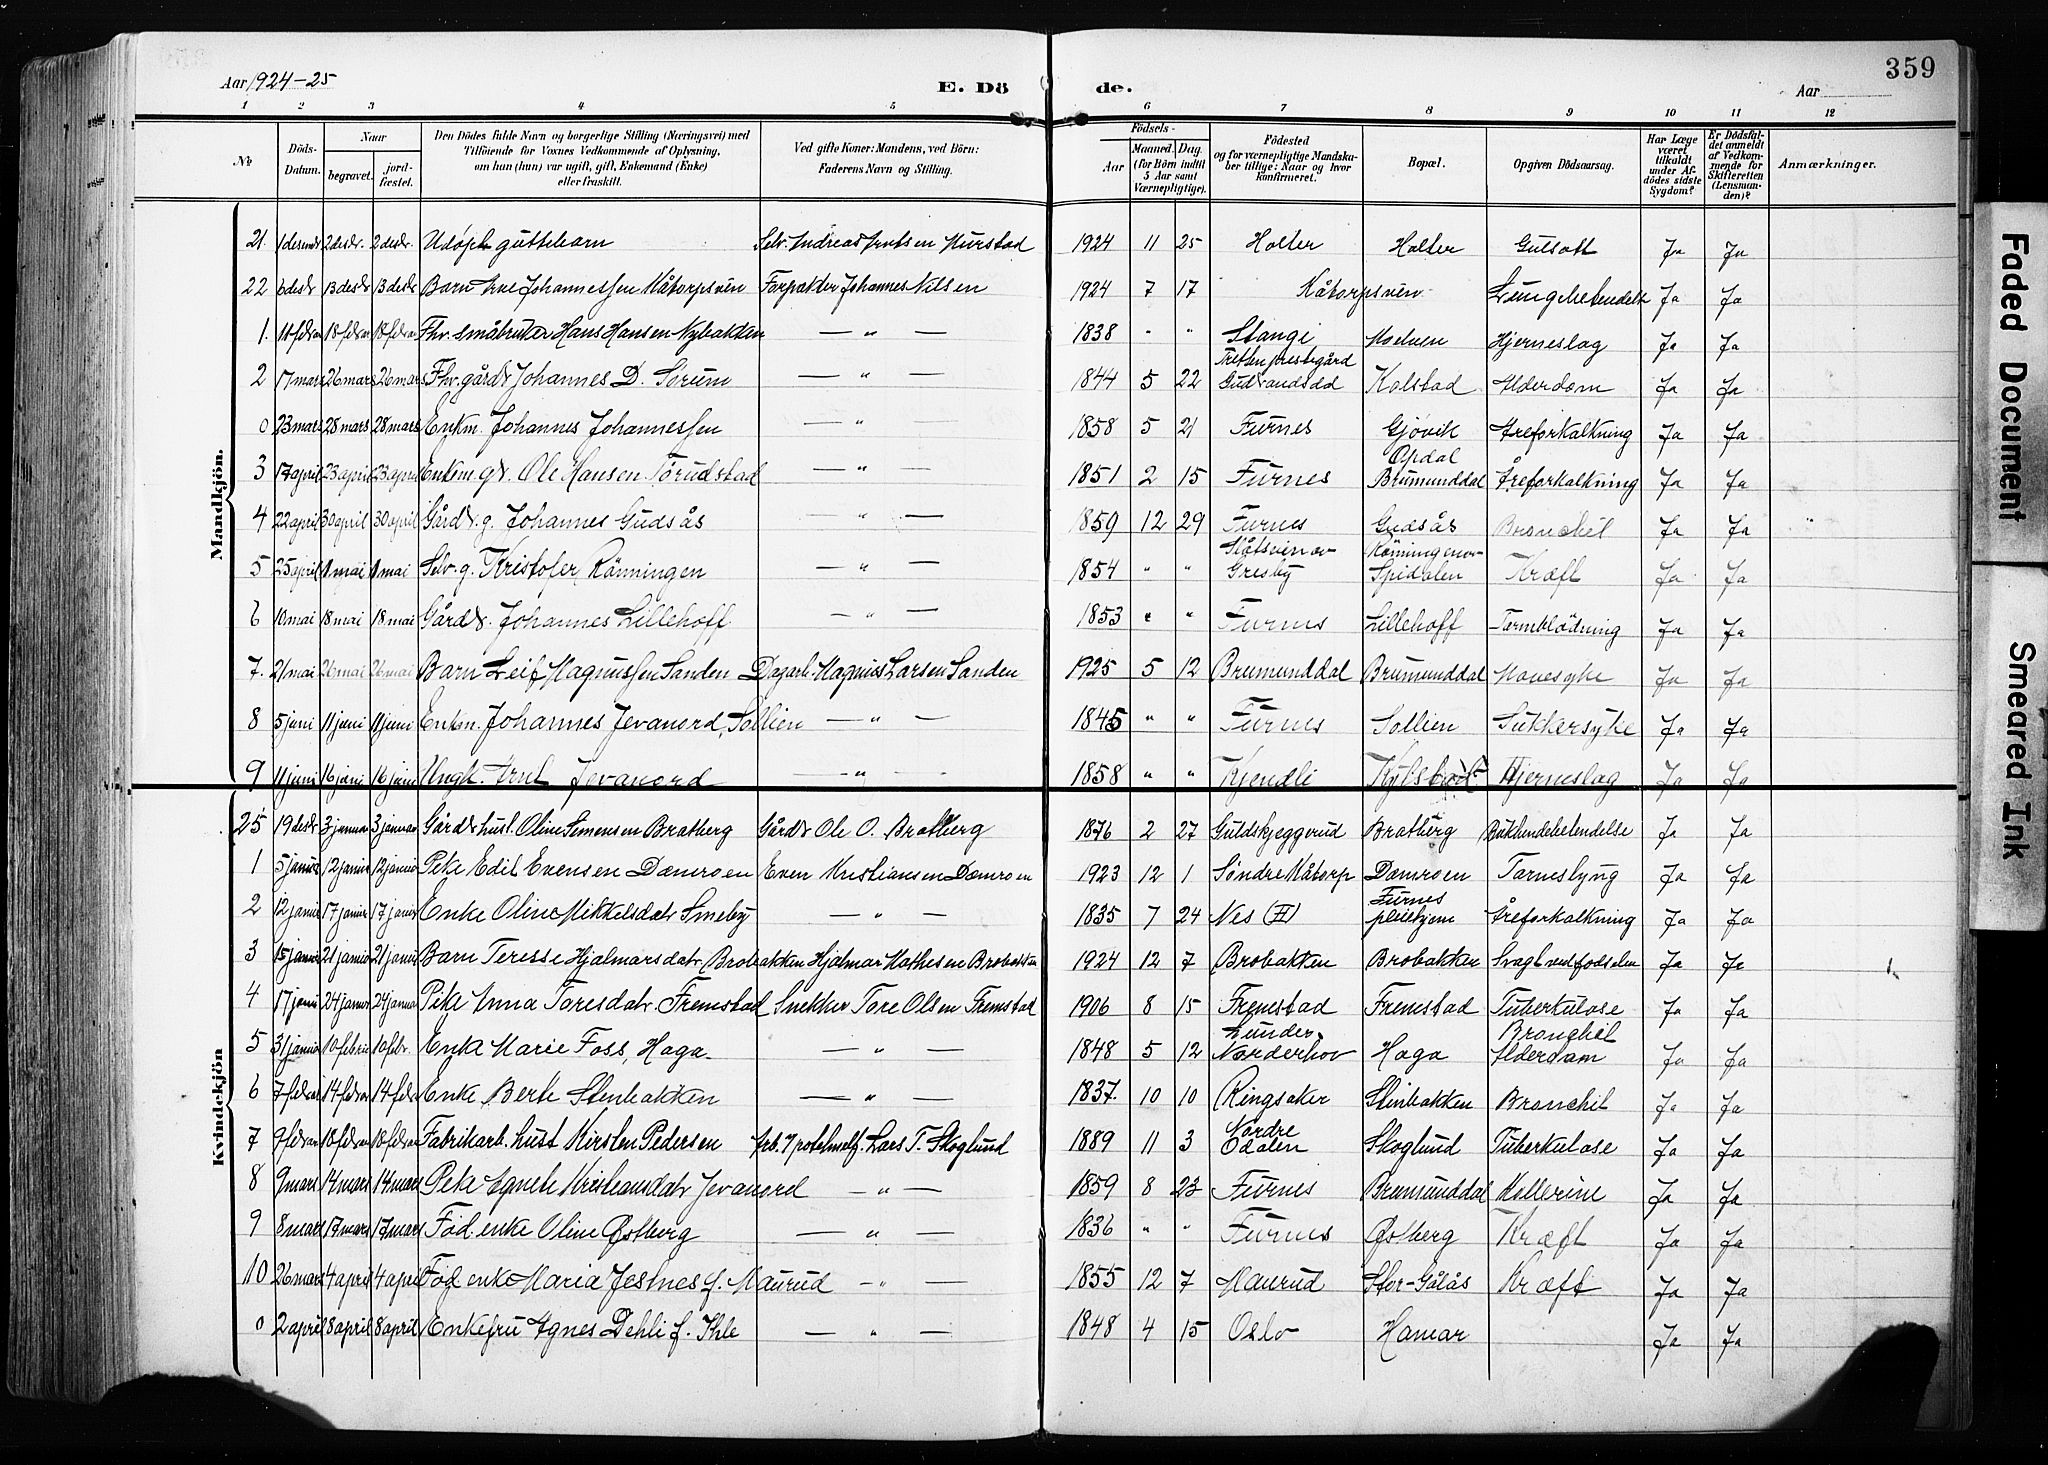 359
Aar 1924-25
E. Dö
de.
Aar
1 2 3 4 5 6 7 8 9 10 11 12
№
Döds-Datum.
Naar
begravet.
jord-fæstet.
Den Dödes fulde Navn og borgerlige Stilling (Næringsvei) med
Tilföiende for Voxnes Vedkommende af Oplysning,
om han (hun) var ugift, gift, Enkemand (Enke)
eller fraskilt.
Ved gifte Koner: Mandens, ved Börn:
Faderens Navn og Stilling.
Födsels-
Aar
Maaned. Dag.
(for Börn indtil
5 Aar samt
Værnepligtige).
Födested
og for værnepligtige Mandska-
ber tillige: Naar og hvor
konfirmeret.
Bopæl.
Opgiven Dödsaarsag.
Har Læge
været
tilkaldt
under Af-
dödes sidste
Sygdom?
Er Dödsfal-
det anmeldt
af Vedkom-
mende for
Skifteretten
(Lensman-
den)?
Anmærkninger.
Mandkjön.
21. 1 desembr 2 desbr. 2 desbr. Udøpt guttebarn Selv. Andreas Knutsen Kurstad 1924 11 25 Holter Holter Gulsott Ja Ja
22 6 desbr 13 desbr 13 desbr Barn Arne Johannessen Kåtorpsven Forpakter Johannes Nilsen 1924 7 17 Kåtorpsven Lungebetendelse Ja Ja
1. 11 februar 18 februar 18 februar Fhv. småbruker Hans Hansen Nybakken — „ — 1838 „ „ Stange Moelven Hjerneslag Ja Ja
2 17 mars 26 mars 26 mars Fhv. gårdbr Johannes D. Sörum — „ — 1844 5 22 Tretten prestegård Gudbrandsdal Kolstad Alderdom Ja Ja
0 23 mars 28 mars 28 mars Enkm. Johannes Johannessen — „ — 1858 5 21 Furnes Gjövik Åreforkalkning Ja Ja
3 17 april 23 april 23 april Enkem. gbr. Ole Hansen Törudstad — „ — 1851 2 15 Furnes Opdal Brumunddal Åreforkalkning Ja Ja
4 22 april 30 april 30 april Gårdbr. g. Johannes Gudsås — „ — 1859 12 29 Furnes Gudsås Bronchit Ja Ja
5 25 april 1 mai 1 mai Selv. g. Kristofer Rönningen — „ — 1854 „ „ Gresby Rönningen Spidalen Kræft Ja Ja
6 10 mai 18 mai 18 mai Gårdbr. Johannes Lillehoff — „ — 1853 „ „ Furnes Lillehoff Tarmblödning Ja Ja
7. 21 mai 26 mai 26 mai Barn Leif Magnussen Sanden Dagarb. Magnus Larsen Sanden 1925 5 12 Brumunddal Brumunddal Mavesyke Ja Ja
8 5 juni 11 juni 11 juni Enkm. Johannes Jevanord, Sollien — „ — 1845 „ „ Furnes Sollien Sukkersyke Ja Ja
9 11 juni 16 juni 16 juni Ungk. Arnt Jevanord — „ — 1858 „ „ Kjendli Kylstad Hjerneslag Ja Ja
Kvindekjön
25 19 desbr 3 januar 3 januar Gårdbr hust. Oline Simensen Bratberg Gårdbr Ole O. Bratberg 1876 2 27 Guldskjeggerud Bratberg Bukhindebetendelse Ja Ja
1 5 januar 12 januar 12 januar Pike Edit Evensen Damroen Even Kristiansen Damroen 1923 12 1 Söndre Kåtorp Damroen Tarneslyng Ja Ja
2 12 januar 17 januar 17 januar Enke Oline Mikkelsdatr Smeby — „ — 1835 7 24 Nes (H) Furnes pleiehjem Åreforkalkning Ja Ja
3 15 januar 21 januar 21 januar Barn Teresse Hjalmarsdatr Brobakken Hjalmar Mathisen Brobakken 1924 12 7 Brobakken Brobakken Svagt ved fødselen Ja Ja
4 17 januar 24 januar 24 januar Pike Anna Toresdatr. Fremstad Snekker Tore Olsen Fremstad 1906 8 15 Fremstad Fremstad Tuberkulose Ja Ja
5 31 januar 10 februar 10 febr. Enke Marie Foss, Haga — „ — 1848 5 12 Lunder Norderhov Haga Bronchit Alderdom Ja Ja
6 7 februar 14 februar 14 februar Enke Berte Stenbakken — „ — 1837. 10 10 Ringsaker Stenbakken Bronchit Ja Ja
7 9 februar 18 februar 18 februar Fabrikarb. hust Kirsten Pedersen Lars T. Skoglund 1889 11 3 Nordre Odalen Skoglund Tuberkulose Ja Ja
8 9 mars 14 mars 14 mars Pike Agnete Kristiansdatr Jevanord — „ — 1859 8 23 Furnes Brumunddal Kolerine Ja Ja
9 8 mars 17 mars 17 mars Föd. enke Oline Østberg — „ — 1836 „ „ Furnes Østberg Kræft Ja Ja
10 26 mars 4 april 4 april Föd enke Maria Jesnes f. Maurud — „ — 1855 12 7 Maurud Stor-Gålås Kræft Ja Ja
0 2 april 8 april 8 april Enkefru Agnes Dehli f. Ihle — „ — 1848 4 15 Oslo Hamar Ja Ja
Faded Document
Smeared Ink